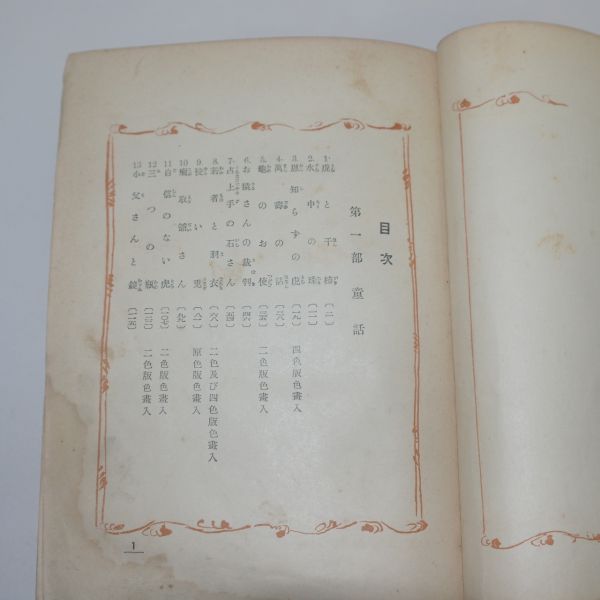 目次
第一部 童話
1. 虎と干柿〔二〕
2. 水中の珠〔一一〕
3. 恩知らずの虎〔一九〕 四色版色畫入
4. 萬壽の話〔二六〕
5. 蟾のお使〔三五〕 二色版色畫入
6. お猿さんの裁判〔四六〕
7. 占上手の石さん〔五四〕
8. 若者と羽衣〔六八〕 二色及び四色版色畫入
9. い〔八一〕 原色版色畫入
10. さん〔九七〕
11. 自信のない虎〔一〇七〕 二色版色畫入
12. 三つの瓶〔一一三〕 二色版色畫入
13. 小父さんと〔一二五〕
1